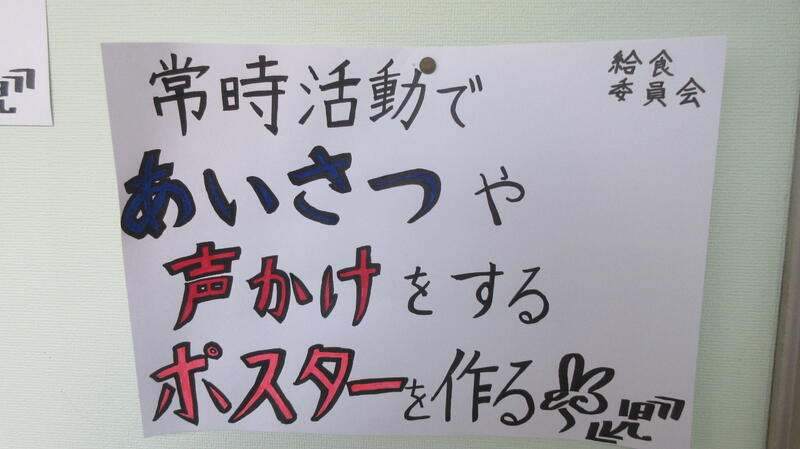 給食
委員会
常時活動で
あいさつや
声かけをする
ポスターを作る